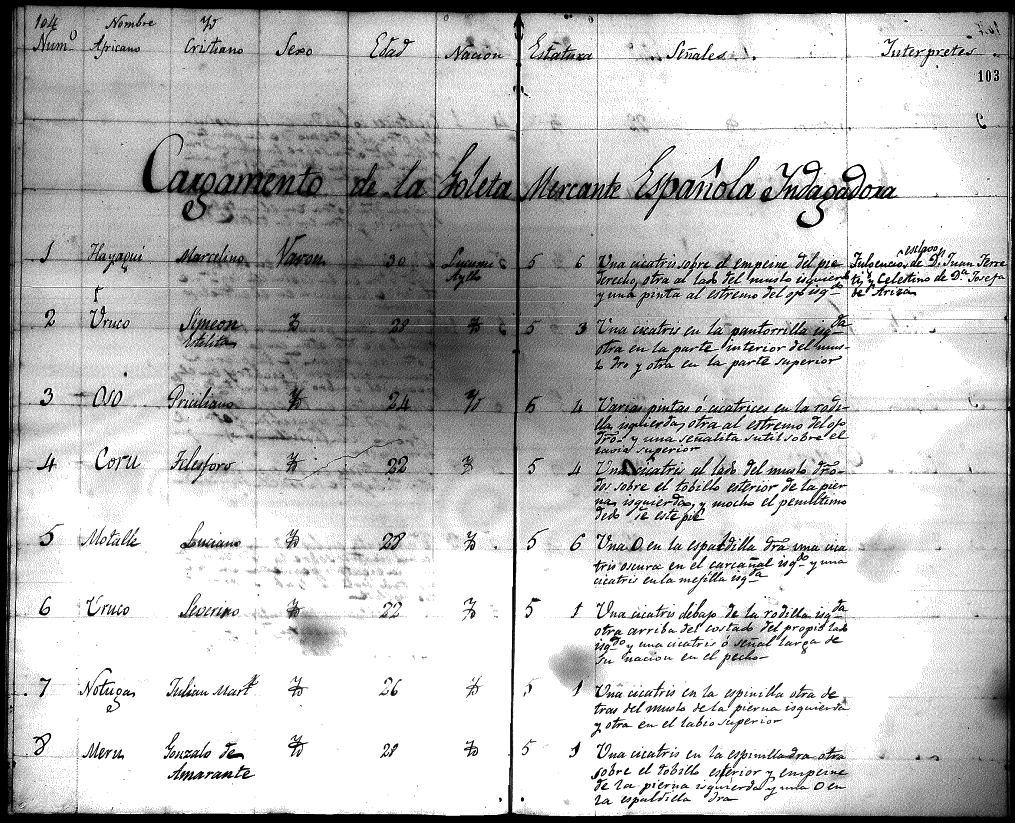 104 Nombre Yd
Num.o Africano Cristiano Sexo Edad Nacion Estatura Señales Interpretes
103
Cargamento de la Goleta Mercante Española Yndagadora
1 Hayaqui Marcelino Varon 30 Lucumi 5 6 Una cicatris sobre el empeine del pie
Ayllo
derecho, otra al lado del muslo izquierdo
y una pinta al estremo del ojo isqdo
esclavo
Fulgencio de Dn Juan Ferre
tis y Celestino de Da Josefa
de Ariza
2 Uruco Simeon Yd 28 Yd 5 3 Una cicatris en la pantorrilla isqda
Estilita
otra en la parte interior del mus-
lo dro y otra en la parte superior
3 Oso Priciliano Yd 24 Yd 5 4 Varias pintas ó cicatrices en la rodi-
lla izquierda, otra al estremo del ojo
dro y una señalita sutil sobre el
lavio superior
4 Coru Filesforo Yd 22 Yd 5 4 Una cicatris al lado del muslo dro
dos sobre el tobillo esterior de la pier
na isquierda, y mocho el penultimo
dedo de este pie
5 Motalle Luciano Yd 28 Yd 5 6 Una O en la espaldilla dra una cica
tris oscura en el carcañal isqdo y una
cicatris en la mejilla isqda
6 Uruco Severino Yd 22 Yd 5 1 Una cicatris debajo de la rodilla isqda
otra arriba del costado del propio lado
isqdo y una cicatris ó señal larga de
su nacion en el pecho
7 Notuga Julian Mart Yd 26 Yd 5 1 Una cicatris en la espinilla otra de
tras del muslo de la pierna isquierda
y otra en el labio superior
8 Meru Gonzalo de Yd 28 Yd 5 1 Una cicatris en la espinilla dra otra
Amarante
sobre el tobillo esterior y empeine
de la pierna isquierda y una O en
la espaldilla dra